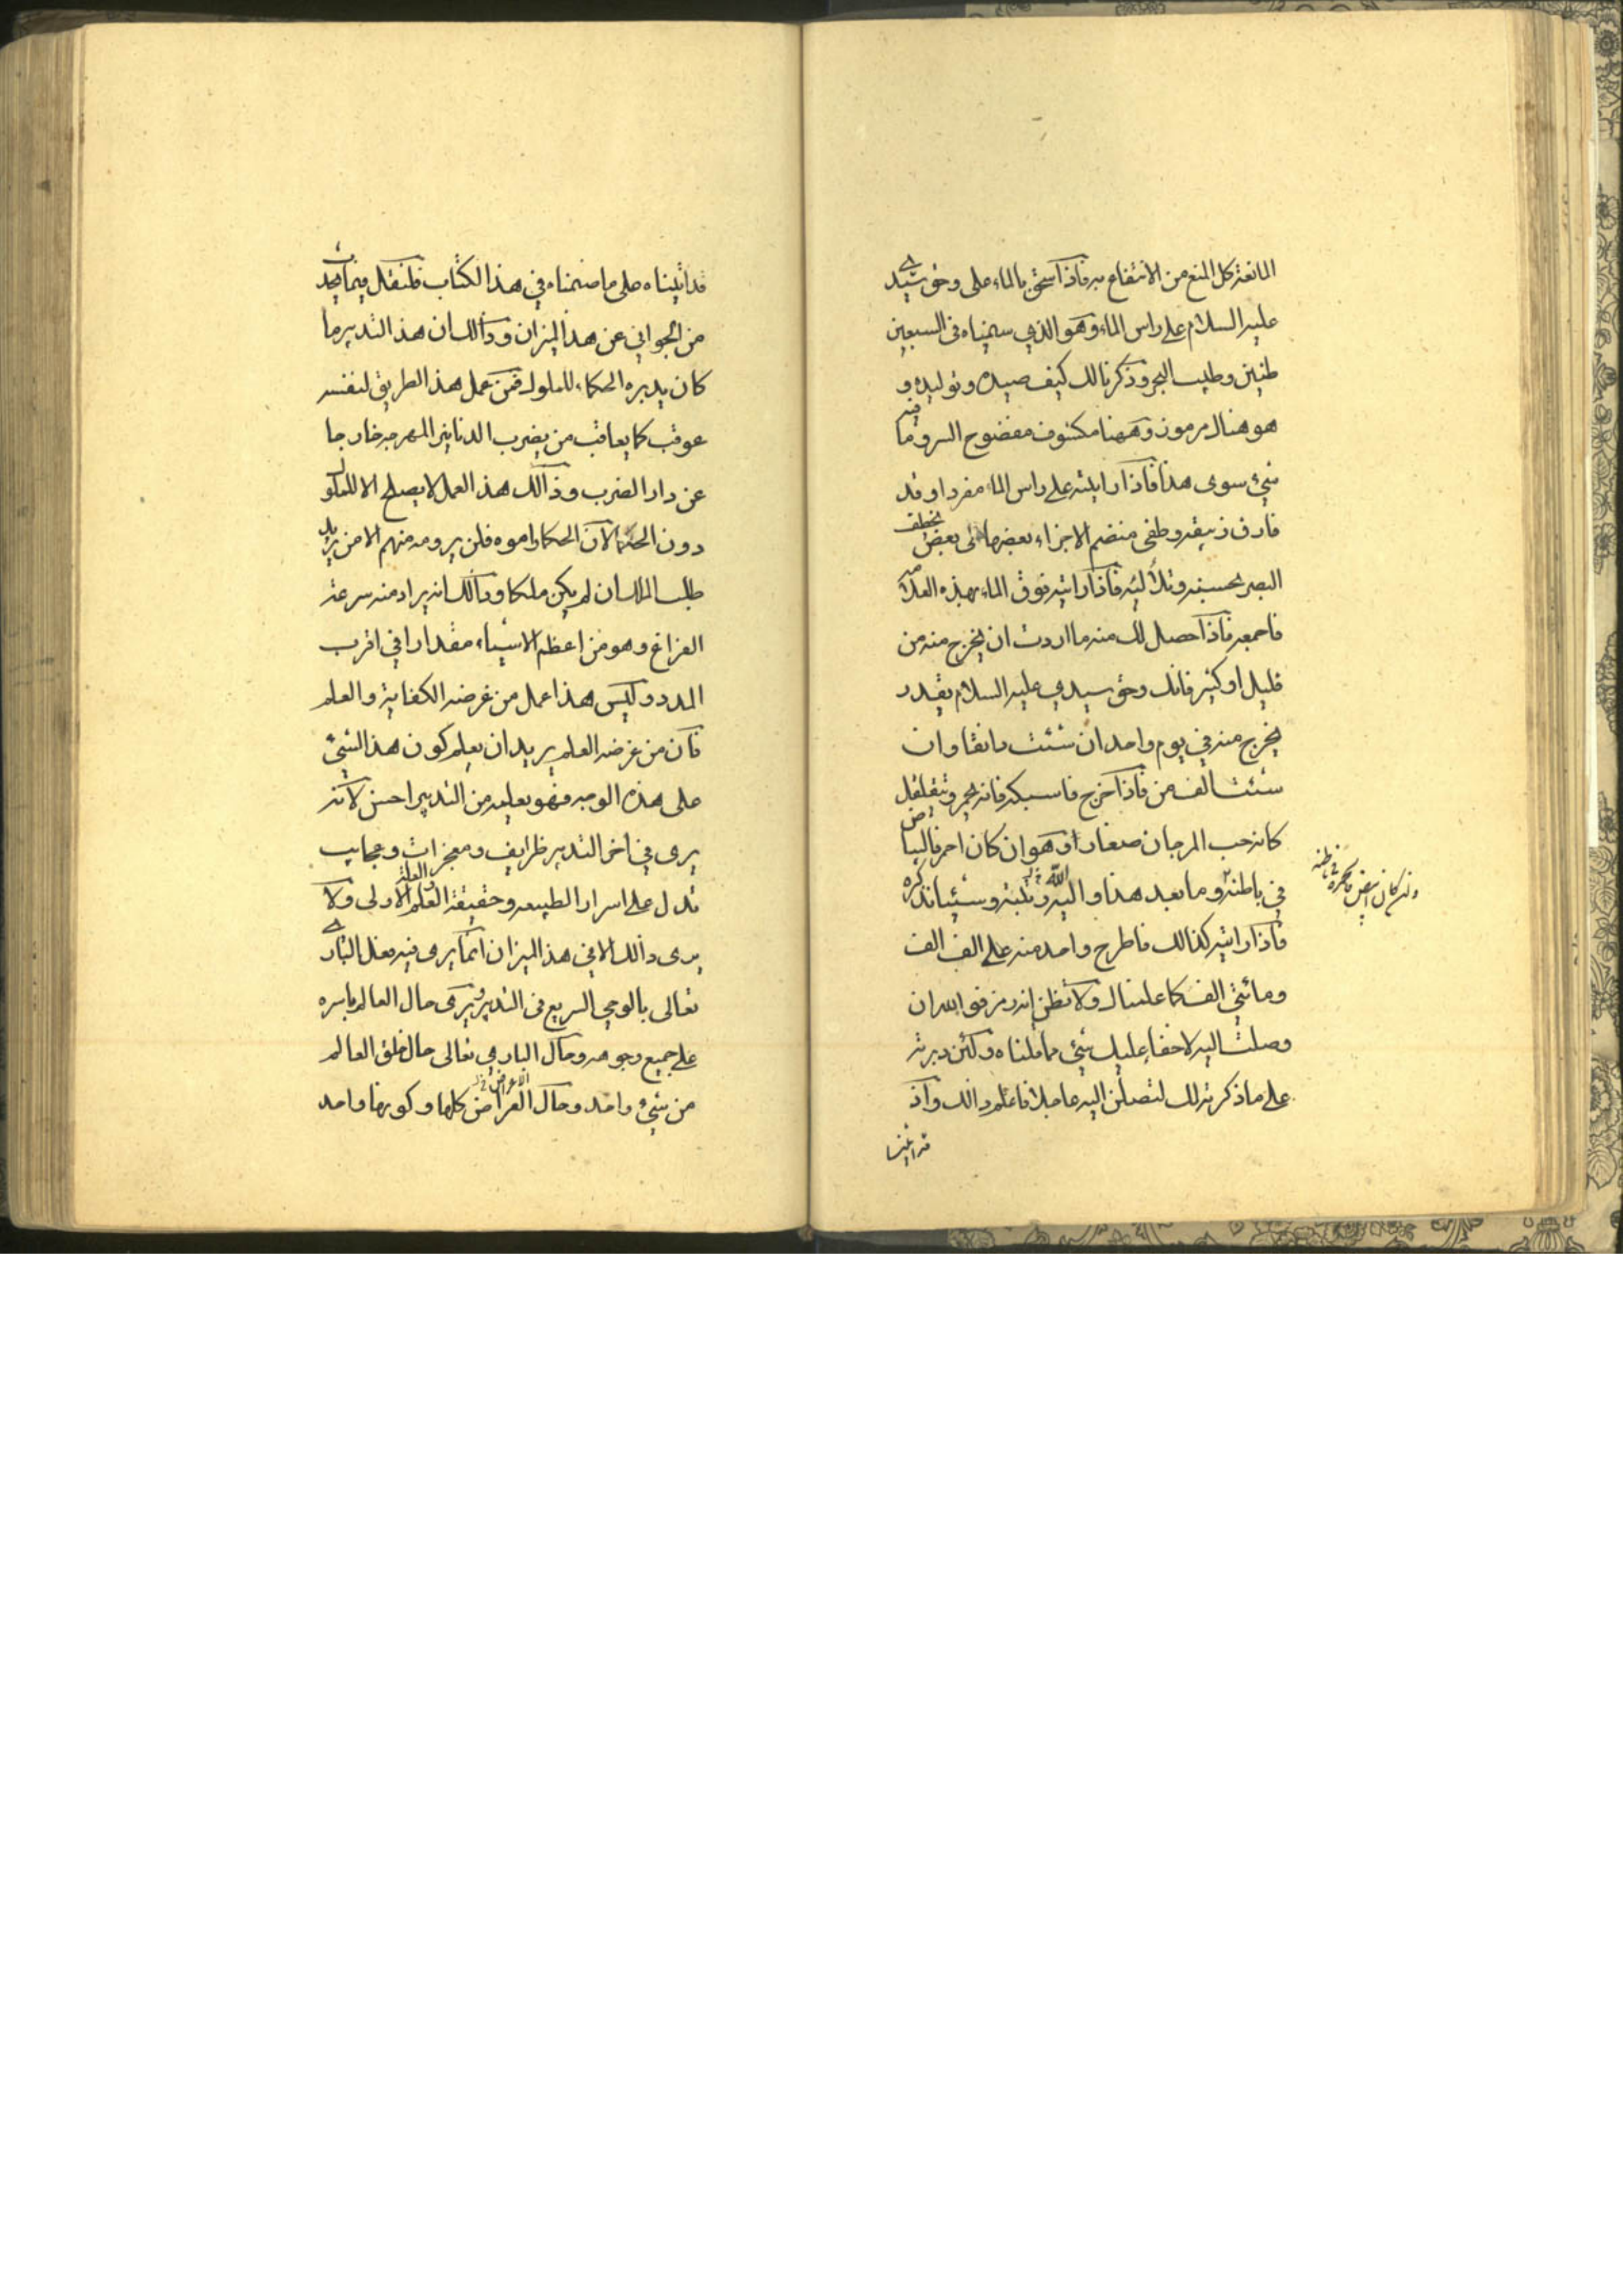 المانعة كل المنع من الانتفاع به فاذا سحق بالماء على وحق سيدي
عليه السلام على راس الماء وهو الذي سميناه في السبعين
طنين وطيب البحر وذكرنا لك كيف صيده وتوليده و
هو هناك مرموز وههنا مكشوف مفضوح السر وما فيه
شيء سوى هذا فاذا رايته على راس الماء مفردا وقد
فارق زيبقه وطفى منضم الاجزاء بعضها الى بعض يخطف
البصر بحسنه وتلألئه فاذا رايته فوق الماء بهذه العلامة
فاجمعه فاذا حصل لك منه ما اردت ان يخرج منه من
قليل او كثير فانك وحق سيدي عليه السلام تقدر
يخرج منه في يوم واحد ان شئت دانقا وان
شئت الف من فاذا خرج فاسبكه فانه يحمر وتيقلقل
كانه حب المرجان صغارا وهو ان كان احمر فالبياض
في باطنه وما بعد هذا والله وتلبته وسيئا نذكره
وان كان ابيض فالحمرة في باطنه
فاذا رايته كذالك فاطرح واحد منه على الف الف
ومائتي الف كما علمناك ولا تظن انه رمز فوالله ان
وصلت اليه لاخفا عليك شيء مما قلناه ولئن دبرته
على ما ذكرته لك لتصلن اليه عاجلا فاعلم ذالك واذ
قد اتينا
قد اتينا على ما ضمناه في هذا الكتاب فلنقل فيما يحدث
من الجواني عن هذا الميزان وذالك ان هذا التدبير ما
كان يدبره الحكماء للملوك فمن عمل هذا الطريق لنفسه
عوقب كما يعاقب من يضرب الدنانير المهرجه خارجا
عن دار الضرب وذالك هذا العمل لا يصلح الا للملوك
دون الحكما لان الحكما راموه فلن يرومه منهم الا من يريد
طلب الملك ان لم يكن ملكا وذالك انه يراد منه سرعة
الفراغ وهو من اعظم الاشياء مقدارا في اقرب
المدد وليس هذا عمل من غرضه الكفاية والعلم
فان من غرضه العلم يريد ان يعلم كون هذا الشيء
على هذه الوجه فهو يعلمه من التدبير احسن لانه
يرى في اخر التدبير ظرايف ومعجزات وعجايب
تدل على اسرار الطبيعه وحقيقة العلم والعلة الاولى ولا
يرى ذالك الا في هذا الميزان انما يرى فيه فعل الباري
تعالى بالوحي السريع في التدبير ويرى حال العالم باسره
على جميع وجوهه وحال الباري تعالى حال خلق العالم
من شيء واحد وحال الاعراض العراض كلها وكونها واحد